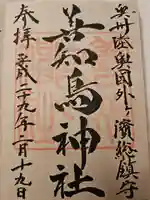 奥州陸奥国外ヶ濱総鎮守
善知鳥神社
参拝 平成二十九年一月十九日